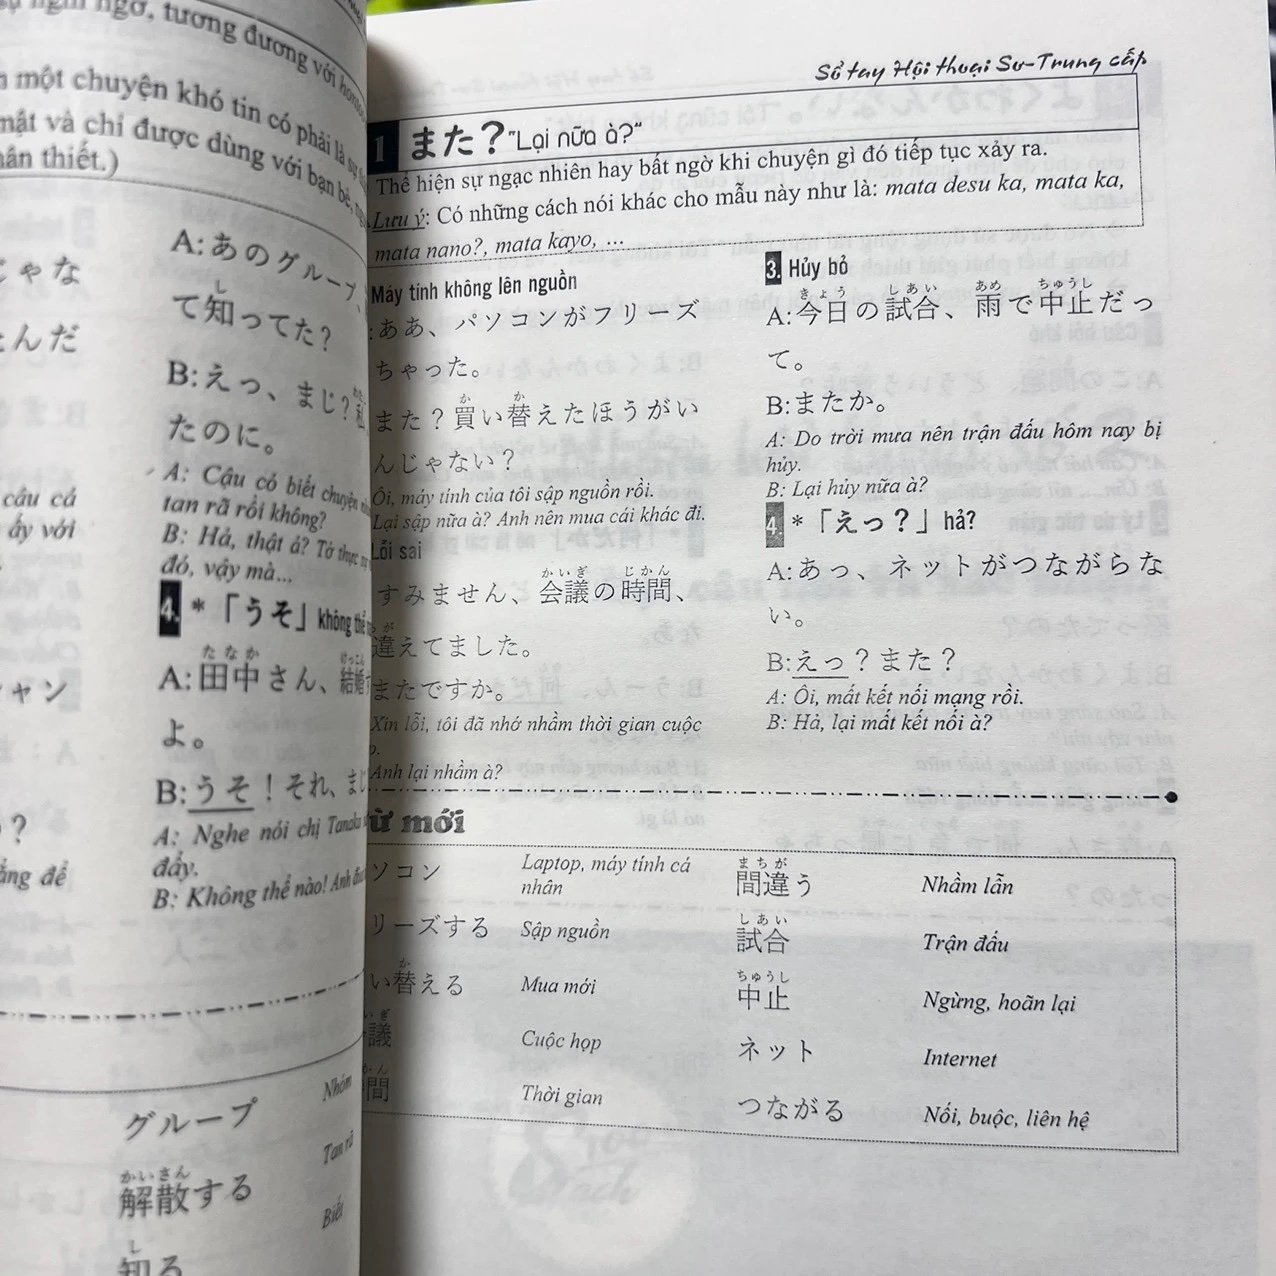 ự nghi ngờ, tương đương với
một chuyện khó tin có phải là sự
mật và chỉ được dùng với bạn bè,
ân thiết.)
じゃな
んだ
câu cả
ấy với
ャン
?
ẳng để
A:あのグループ、
て知ってた?
し
B:えっ、まじ?私
たのに。
A: Cậu có biết chuyện
tan rã rồi không?
B: Hả, thật á? Tớ thực
đó, vậy mà...
4. *「うそ」không thể
たなか けっこん
A:田中さん、結婚
よ。
B:うそ!それ、ま
A: Nghe nói chị Tanaka
đấy.
B: Không thể nào! Anh
グループ
Nhóm
かいさん
解散する
Tan rã
し
知る
Biết
Sổ tay Hội thoại Sơ-Trung cấp
1 また?"Lại nữa à?"
Thể hiện sự ngạc nhiên hay bất ngờ khi chuyện gì đó tiếp tục xảy ra.
Lưu ý: Có những cách nói khác cho mẫu này như là: mata desu ka, mata ka,
mata nano?, mata kayo, ...
Máy tính không lên nguồn
:ああ、パソコンがフリーズ
ちゃった。
か か
また?買い替えたほうがい
んじゃない?
Ôi, máy tính của tôi sập nguồn rồi.
Lại sập nữa à? Anh nên mua cái khác đi.
Lỗi sai
かいぎ じかん
すみません、会議の時間、
が
違えてました。
またですか。
Xin lỗi, tôi đã nhớ nhầm thời gian cuộc
p.
Anh lại nhầm à?
3. Hủy bỏ
きょう しあい あめ ちゅうし
A:今日の試合、雨で中止だっ
て。
B:またか。
A: Do trời mưa nên trận đấu hôm nay bị
hủy.
B: Lại hủy nữa à?
4. *「えっ?」hả?
A:あっ、ネットがつながらな
い。
B:えっ?また?
A: Ôi, mất kết nối mạng rồi.
B: Hả, lại mất kết nối à?
ừ mới
ソコン
Laptop, máy tính cá
nhân
リーズする
Sập nguồn
か
い替える
Mua mới
いぎ
議
Cuộc họp
かん
間
Thời gian
まちが
間違う
Nhầm lẫn
しあい
試合
Trận đấu
ちゅうし
中止
Ngừng, hoãn lại
ネット
Internet
つながる
Nối, buộc, liên hệ